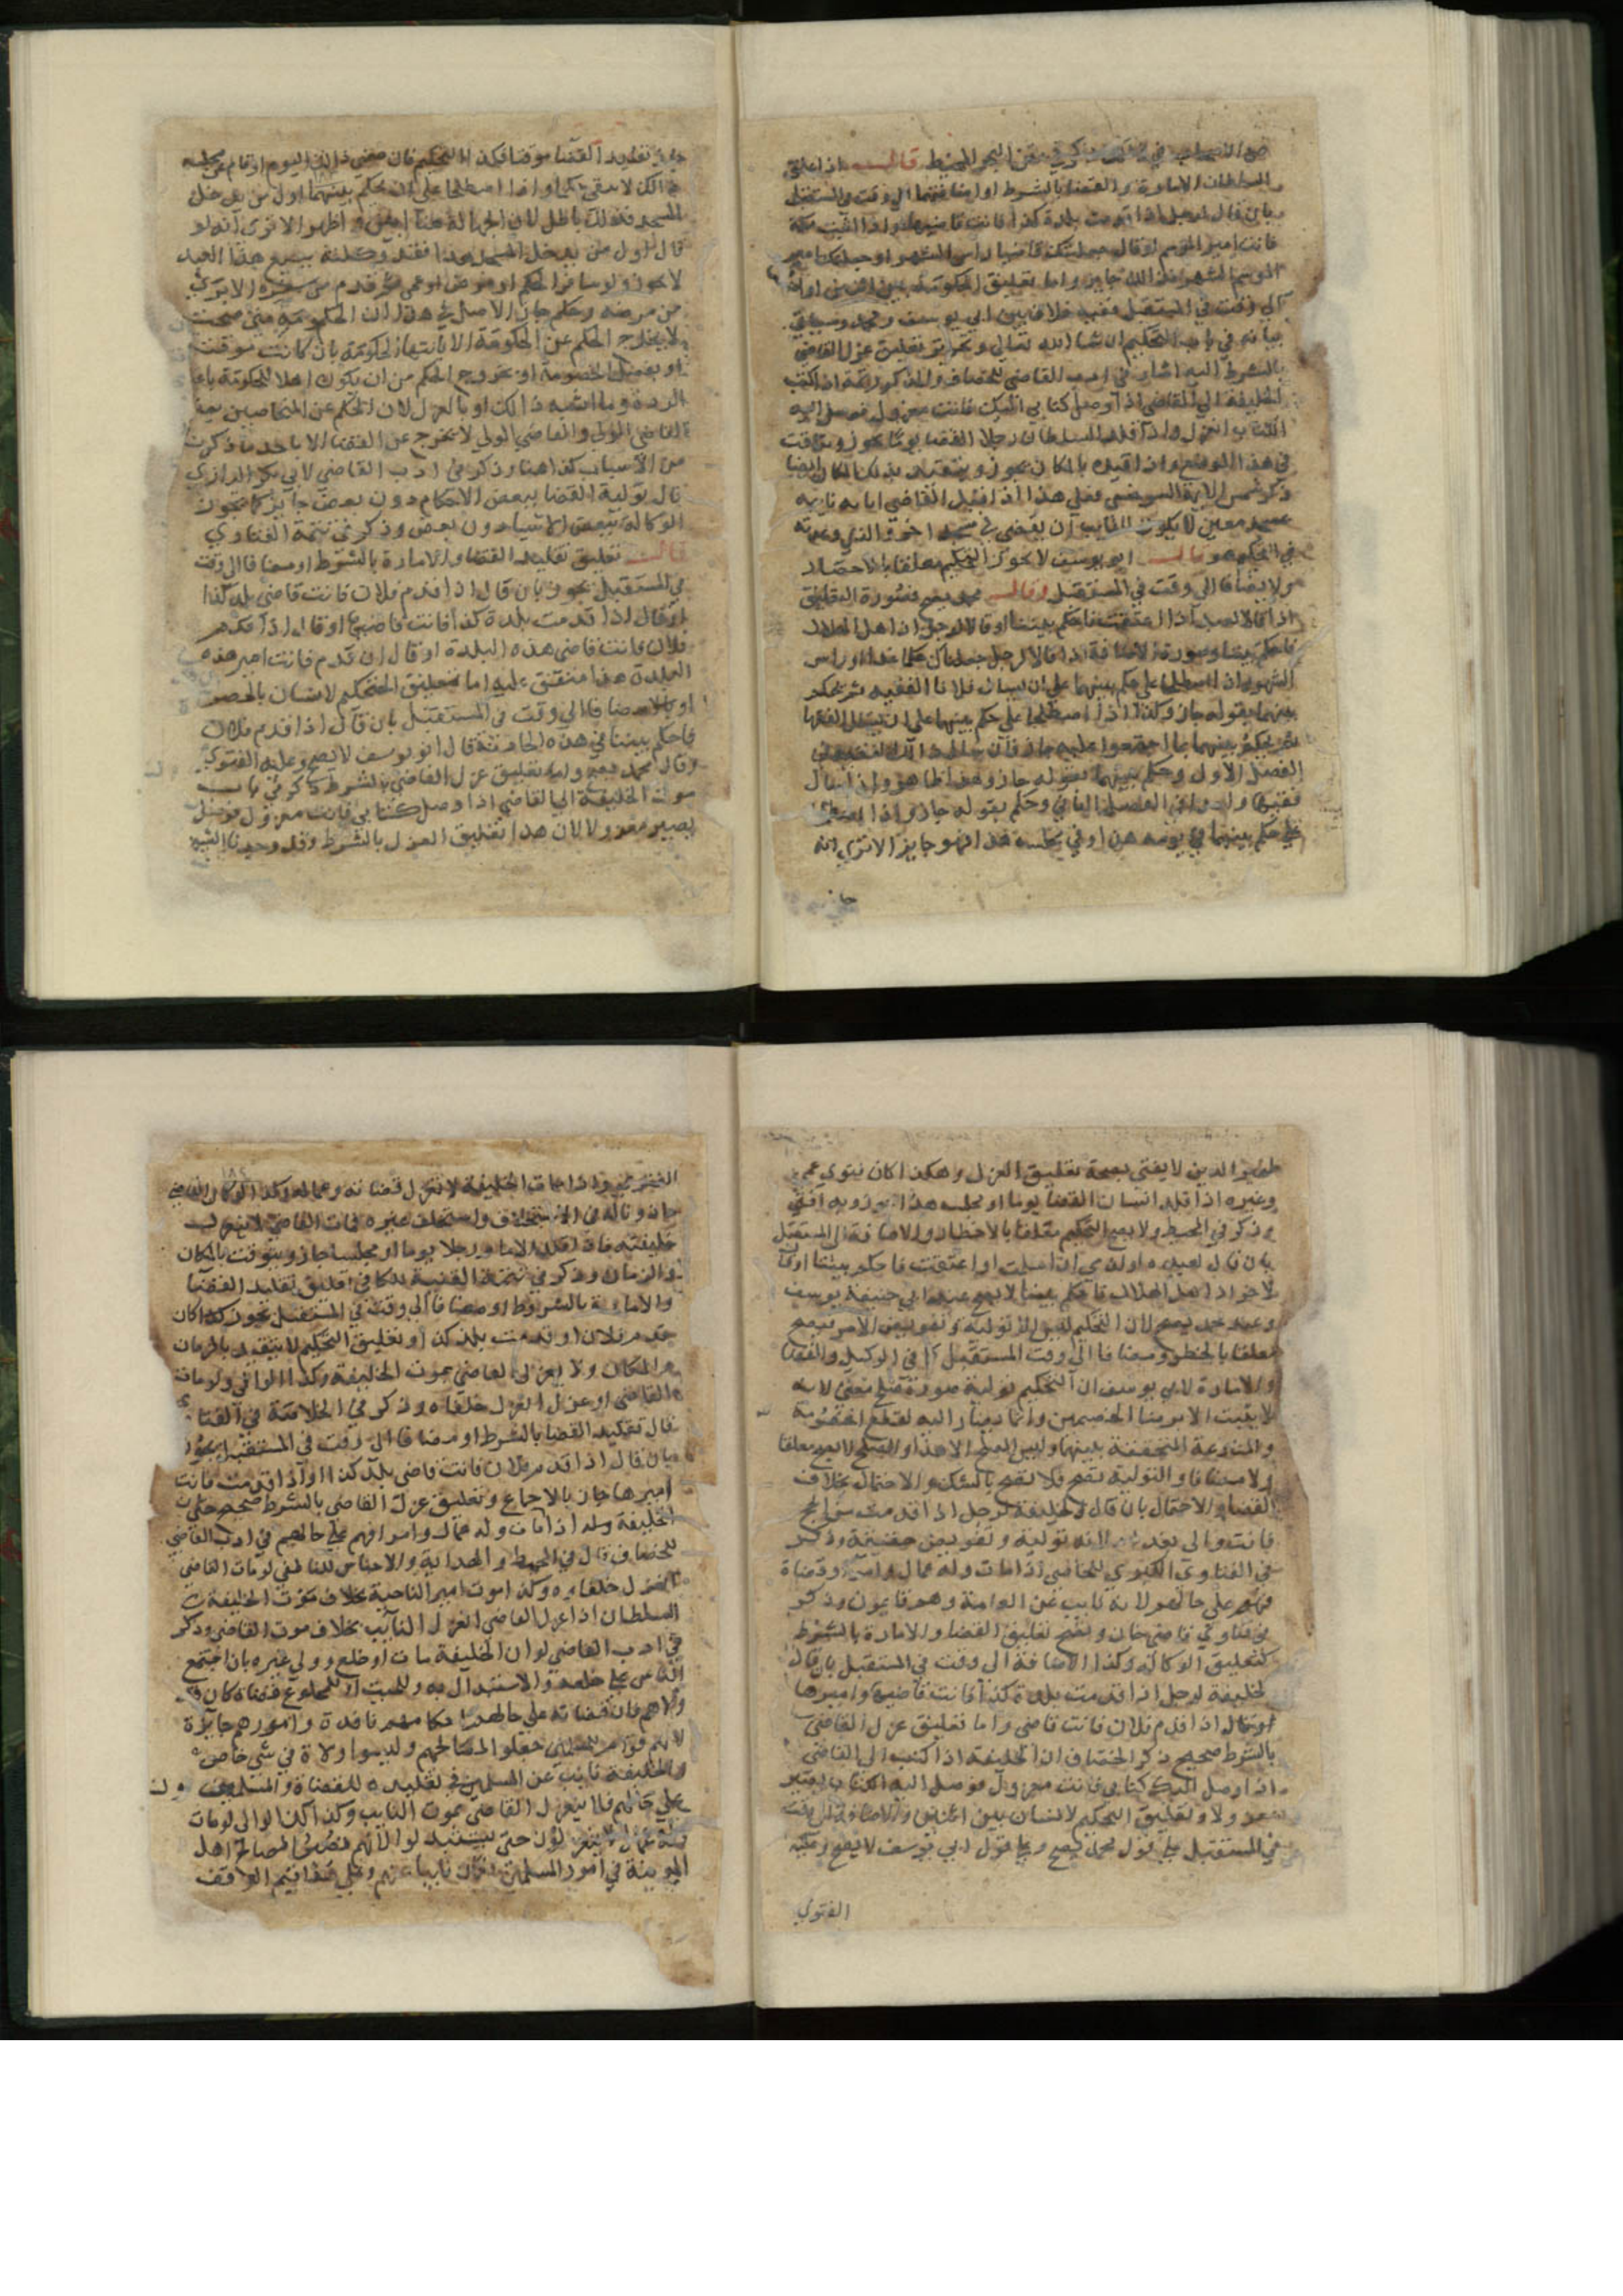 قالـــ اذا علق
السلطان الامارة والقضا بالشرط او اضافهما الى وقت في المستقبل
بان قال لرجل اذا قدمت بلدة كذا فانت قاضيها واذا اتيت مكة
فانت امير الموسم او قال جعلتك قاضيا راس الشهر او جعلتك امير
الشهر فذلك جايز واما تعليق الحكومة بين اثنين او
الى وقت في المستقبل ففيه خلاف بين ابي يوسف ومحمد وسياتي
بيانه في باب التحكيم ان شا الله تعالى وتعليق عزل القاضي
بالشرط اليه اشار في ادب القاضي للخصاف اذا كتب
الخليفة الى القاضي اذا وصل كتابي اليك فانت معزول فوصل اليه
الكتاب انعزل واذا قلد السلطان رجلا القضا يوما يجوز ويتاقت
في هذا الموضع واذا قيده بالمكان يجوز ويتقيد بذلك المكان ايضا
ذكر شمس الايمة السرخسي فعلى هذا اذا قيد القاضي انابة نايبه
بمسجد معين لا يكون للنايب ان يقضي في مسجد اخر
قالـــ ابو يوسف لا يجوز التحكيم معلقا بالاخطار
ولا مضافا الى وقت في المستقبل وقالـــ محمد يصح فصورة التعليق
اذا قالا لعبد اذا اعتقت فاحكم بيننا او قالا لرجل اذا اهل الهلال
فاحكم بيننا وصورة الاضافة اذا قالا لرجل جعلناك حكما غدا او راس
الشهر وان اصطلحا على حكم بينهما على ان يسال فلانا الفقيه ثم يحكم
بينهما بقوله جاز وكذا اذا اصطلحا على حكم بينهما على ان يسال الفقها
ثم يحكم بينهما بما اجتمعوا عليه جاز فان سال
الفصل الاول وحكم بينهما بقوله جاز وهذا ظاهر وان سال
فقيها واحدا في الفصل الثاني وحكم بقوله جاز واذا اصطلحا
على حكم بينهما في يومه هذا او في مجلسه هذا فهو جايز الا ترى انه
جاز
تقليد القضا موقتا فكذا التحكيم فان مضى ذلك اليوم او قام عن مجلسه
ذلك لا يبقى حكما واذا اصطلحا على ان يحكم بينهما اول من يدخل
المسجد فذلك باطل لان الجهالة هنا ابين واظهر الا ترى انه لو
قال لاول من يدخل المسجد هذا فقد وكلته ببيع هذا العبد
لا يجوز ولو سافر الحكم او مرض او عمي ثم قدم من سفره او برئ
من مرضه وحكم جاز والاصل في هذا ان الحكومة متى صحت
لا يخرج الحكم عن الحكومة الا بانتها الحكومة بان كانت موقتة
او بفصل الخصومة او بخروج الحكم من ان يكون اهلا للحكومة
الردة وما اشبه ذلك او بالعزل لان الحكم عن المتخاصمين بمنزلة
القاضي المولى والقاضي المولى لا يخرج عن القضا الا باحد ما ذكرنا
من الاسباب كذا هنا وذكر في ادب القاضي لابي بكر الرازي
قال تولية القضا ببعض الاحكام دون بعض جايز كما تجوز
الوكالة ببعض الاشيا دون بعض وذكر في تتمة الفتاوي
قالـــ تعليق تقليد القضا والامارة بالشرط او مضافا الى وقت
في المستقبل يجوز بان قال اذا قدم فلان فانت قاضي بلدة كذا
او قال اذا قدمت بلدة كذا فانت قاضيها او قال اذا قدم
فلان فانت قاضي هذه البلدة او قال ان قدم فانت امير هذه
البلدة هذا متفق عليه اما تعليق التحكيم لانسان بالخطر
او مضافا الى وقت في المستقبل بان قال اذا قدم فلان
فاحكم بيننا في هذه الحادثة قال ابو يوسف لا يصح وعليه الفتوى
وقال محمد يصح واما تعليق عزل القاضي بالشرط ذكر في باب
موت الخليفة الى القاضي اذا وصل كتابي فانت معزول فوصل
يصير معزولا لان هذا تعليق العزل بالشرط وقد وجدنا الشيخ
ظهير الدين لا يفتي بصحة تعليق العزل وهكذا كان فتوى عمي
وغيره اذا قلد انسان القضا يوما او مجلسا هذا يجوز وبه افتي
وذكر في المحيط ولا يصح التحكيم معلقا بالاخطار والاضافة الى المستقبل
بان قال لعبده او لذمي اذا اسلمت او اعتقت فاحكم بيننا او قا
لاخر اذا هل الهلال فاحكم بيننا لا يصح عند ابي حنيفة يوسف
وعند محمد يصح لان التحكيم تولية وتفويض الامر فيصح
معلقا بالخطر ومضافا الى وقت المستقبل كما في الوكيل والقضا
والامارة لابي يوسف ان التحكيم تولية صورة صلح معنى لانه
لا يثبت الا برضا الخصمين وانما يصار اليه لقطع الخصومة
والمنازعة المتحققة بينهما وليس الصلح الا هذا والصلح لا يصح معلقا
ولا مضافا والتولية تصح فلا تصح بالشك والاحتمال بخلاف
القضا والاحتمال بان قال الخليفة لرجل اذا قدمت
فانت والى بعد لانه تولية وتفويض حقيقة وذكر
في الفتاوي الكبرى للخاصي اذا مات وله عمال وامرا وقضاة
فهم على حالهم لانه نايب عن العامة وهم قايمون وذكر
في فتاوي قاضي خان ويصح تعليق القضا والامارة بالشرط
كتعليق الوكالة وكذا الاضافة الى وقت في المستقبل بان قال
الخليفة لرجل اذا قدمت بلدة كذا فانت قاضيها واميرها
او قال اذا قدم فلان فانت قاضي واما تعليق عزل القاضي
بالشرط صحيح ذكر الخصاف ان الخليفة اذا كتب الى القاضي
اذا وصل اليك كتابي فانت معزول فوصل اليه الكتاب يصير
معزولا وتعليق التحكيم لانسان بين اثنين والاضافة الى وقت
في المستقبل على قول محمد يصح وعلى قول ابي يوسف لا يصح وعليه
الفتوي
الفتوى واذا مات الخليفة لا تنعزل قضاته وعماله وكذا لو كان القاضي
ماذونا له في الاستخلاف واستخلف غيره فمات القاضي لا ينعزل
خليفته فاذا قلد الامام رجلا يوما او مجلسا جاز ويتوقت بالمكان
والزمان وذكر في تتمة القنية تعليق تقليد القضا
والامارة بالشروط او مضافا الى وقت في المستقبل يجوز كذا كان
قدم فلان او قدمت بلد كذا وتعليق التحكيم لا يتقيد بالزمان
والمكان ولا ينعزل القاضي بموت الخليفة وكذا الوالي ولو مات
القاضي او عزل انعزل خلفاه وذكر في الخلاصة في القضا
قال تقليد القضا بالشرط او مضافا الى وقت في المستقبل يجوز
بان قال اذا قدم فلان فانت قاضي بلد كذا او اذا قدمت فانت
اميرها جاز بالاجماع وتعليق عزل القاضي بالشرط صحيح
الخليفة اذا مات وله عمال وامرا فهم على حالهم في ادب القاضي
للخصاف قال في المحيط والهداية والاجناس للناطفي لو مات القاضي
انعزل خلفاوه وكذا موت امير الناحية بخلاف موت الخليفة
السلطان اذا عزل القاضي انعزل النايب بخلاف موت القاضي وذكر
في ادب القاضي لو ان الخليفة مات او خلع وولى غيره بان اجتمع
الناس على خلعه والاستبدال به وللميت او للمخلوع قضاة كان
ولاهم فان قضاته على حالهم احكامهم نافذة وامورهم جايزة
لانهم قوام جعلو المصالحهم وليسوا ولاة في شي خاص
والخليفة نايب عن المسلمين في تقليده للقضاة والمسلمون
على حالهم فلا ينعزل القاضي بموت النايب وكذا الوالي لو مات
وله عمال لا ينعزلون حتى يستبدلوا لانهم نصبوا لمصالح اهل
المدينة في امور المسلمين فكان نايبا عنهم وعلى هذا قيم الوقف